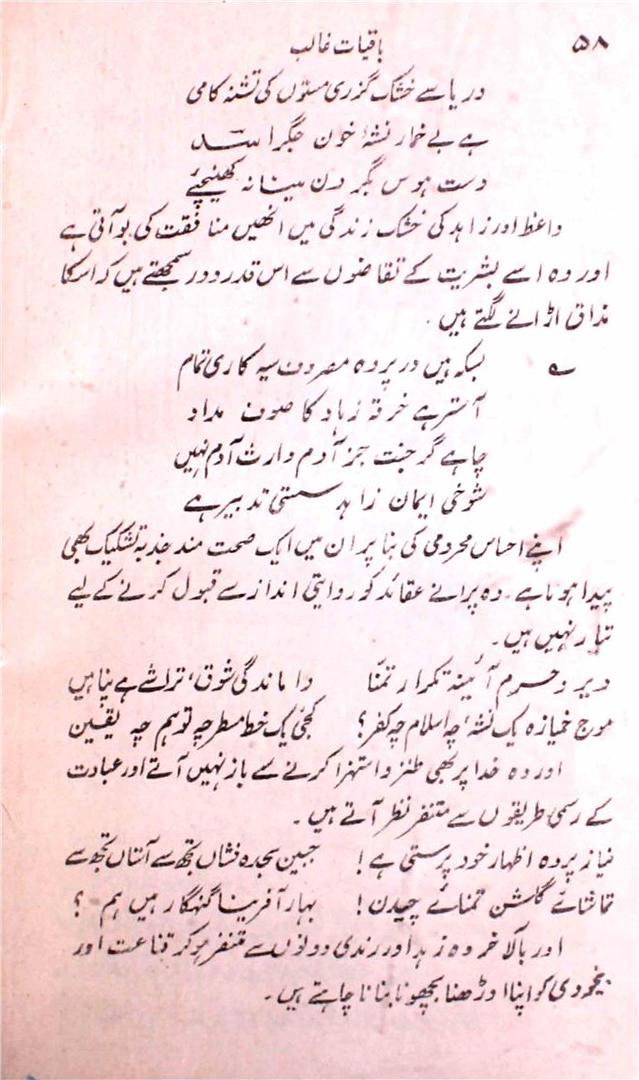 ۵۸
باقیات غالب
دریا سے خشک گزری مستوں کی تشنہ کامی
ہے بے خمار نشۂ خون جگر اسدؔ
دست ہوس بگردن مینا نہ کھینچئے
واعظ اور زاہد کی خشک زندگی میں انھیں منافقت کی بو آتی ہے
اور وہ اسے بشریت کے تقاضوں سے اس قدر دور سمجھتے ہیں کہ اسکا
مذاق اڑانے لگتے ہیں۔
؎ بسکہ ہیں در پردہ مصروف سیہ کاری تمام
آستر ہے خرقہ زہاد کا صوف مداد
چاہے گر جنت جز آدم وارث آدم نہیں
شوخی ایمان زاہد سستی تدبیر ہے
اپنے احساس محرومی کی بنا پر ان میں ایک صحت مند جذبۂ تشکیک بھی
پیدا ہوتا ہے۔ وہ پرانے عقائد کو روایتی انداز سے قبول کرنے کے لیے
تیار نہیں ہیں۔
دیر و حرم آئینۂ تکرار تمنا وا ماندگی شوق، تراشے ہے پناہیں
موج خمیازہ یک نشہ، چہ اسلام چہ کفر؟ کجی یک خط مسطر چہ توہم چہ یقین
اور وہ خدا پر بھی طنز و استہزا کرنے سے باز نہیں آتے اور عبادت
کے رسمی طریقوں سے متنفر نظر آتے ہیں۔
نیاز پردہ اظہار خود پرستی ہے! جبین سجدہ فشاں تجھ سے آستاں تجھ سے
تماشائے گلشن تمنائے چیدن! بہار آفرینا گنہگار ہیں ہم ؟
اور بالآخر وہ زہد اور رندی دونوں سے متنفر ہو کر قناعت اور
بیخودی کو اپنا اوڑھنا بچھونا بنانا چاہتے ہیں۔